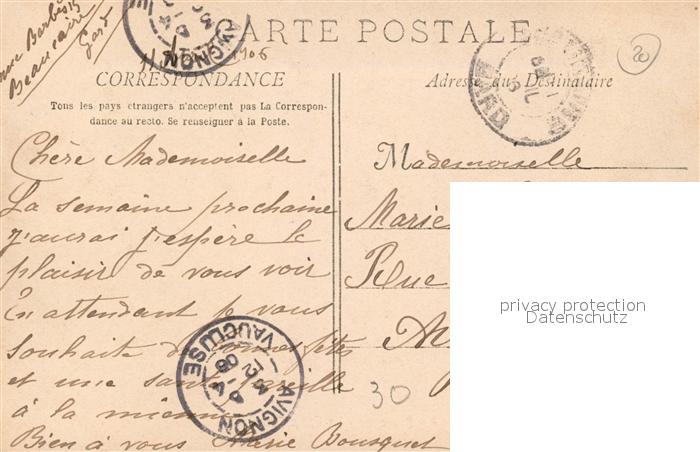 Barbès 15
Beaucaire
Gard
CARTE POSTALE
AVIGNON
1906
20
CORRESPONDANCE
Adresse du Destinataire
Tous les pays étrangers n'acceptent pas La Correspon-
dance au recto. Se renseigner à la Poste.
GARD
Chère Mademoiselle
La semaine prochaine
j'aurai j'espère le
plaisir de vous voir
En attendant je vous
souhaite de bonnes fêtes
et une santé pareille
à la mienne
Bien à vous Marie Bousquet
AVIGNON
VAUCLUSE
Mademoiselle
Marie
Rue
30
privacy protection
Datenschutz